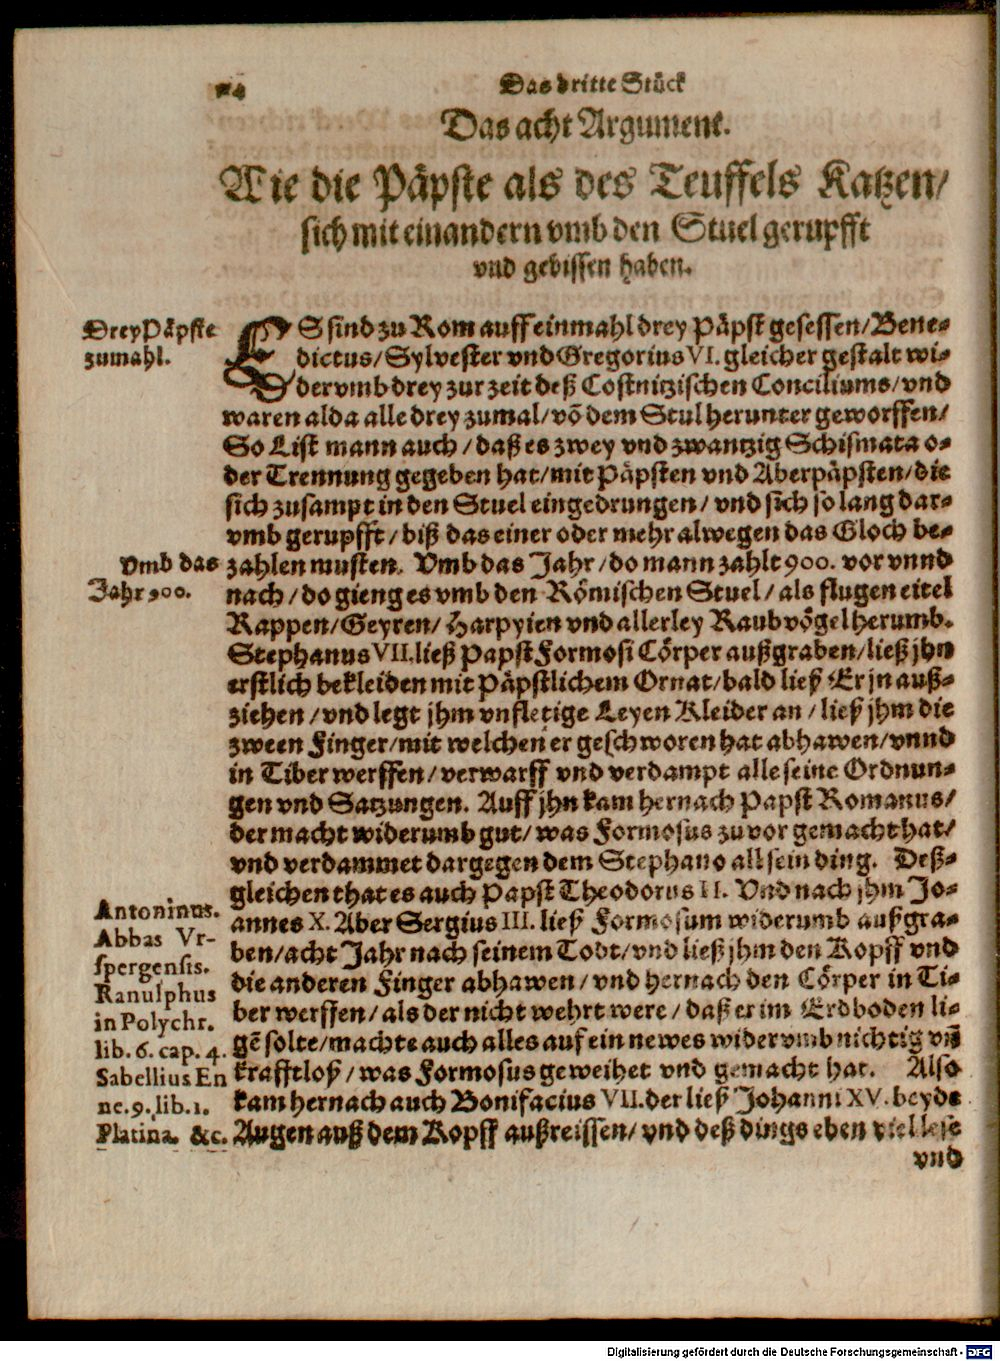 Das dritte Stück
Das acht Argument.
Wie die Päpste als des Teuffels Katzen/
sich mit einandern vmb den Stuel gerupfft
vnd gebissen haben.
Drey Päpste
zumahl.
ES sind zu Rom auff einmahl drey Päpst gesessen/ Bene-
dictus/ Sylvester vnd Gregorius VI. gleicher gestalt wi-
der vmb drey zur zeit deß Costnitzischen Conciliums/ vnd
waren alda alle drey zumal/ võ dem Stul herunter geworffen/
So List mann auch/ daß es zwey vnd zwantzig Schismata o-
der Trennung gegeben hat/ mit Päpsten vnd Aberpäpsten/ die
sich zusampt in den Stuel eingedrungen/ vnd sich so lang dar-
vmb gerupfft/ biß das einer oder mehr alwegen das Gloch be-
Vmb das
Jahr 900.
zahlen musten. Vmb das Jahr/ do mann zahlt 900. vor vnnd
nach/ do gieng es vmb den Römischen Stuel/ als flugen eitel
Rappen/ Geyren/ Harpyien vnd allerley Raubvögel herumb.
Stephanus VII. ließ Papst Formosi Cörper außgraben/ ließ jhn
erstlich bekleiden mit Päpstlichem Ornat/ bald ließ Er jn auß-
ziehen/ vnd legt jhm vnfletige Leyen Kleider an/ ließ jhm die
zween Finger/ mit welchen er geschworen hat abhawen/ vnnd
in Tiber werffen/ verwarff vnd verdampt alle seine Ordnun-
gen vnd Satzungen. Auff jhn kam hernach Papst Romanus/
der macht widerumb gut/ was Formosus zuvor gemacht hat/
vnd verdammet dargegen dem Stephano all sein ding. Deß-
gleichen that es auch Papst Theodorus II. Vnd nach jhm Jo-
annes X. Aber Sergius III. ließ Formosum widerumb außgra-
ben/ acht Jahr nach seinem Todt/ vnd ließ jhm den Kopff vnd
die anderen Finger abhawen/ vnd hernach den Cörper in Ti-
ber werffen/ als der nicht wehrt were/ daß er im Erdboden li-
gẽ solte/ machte auch alles auf ein newes widervmb nichtig vñ
krafftloß/ was Formosus geweihet vnd gemacht hat. Also
kam hernach auch Bonifacius VII. der ließ Johanni XV. beyde
Augen auß dem Kopff außreissen/ vnd deß dings eben viel lese
Antoninus.
Abbas Vr-
spergensis.
Ranulphus
in Polychr.
lib. 6. cap. 4.
Sabellius En
ne. 9. lib. 1.
Platina. &c.
vnd
Digitalisierung gefördert durch die Deutsche Forschungsgemeinschaft - DFG